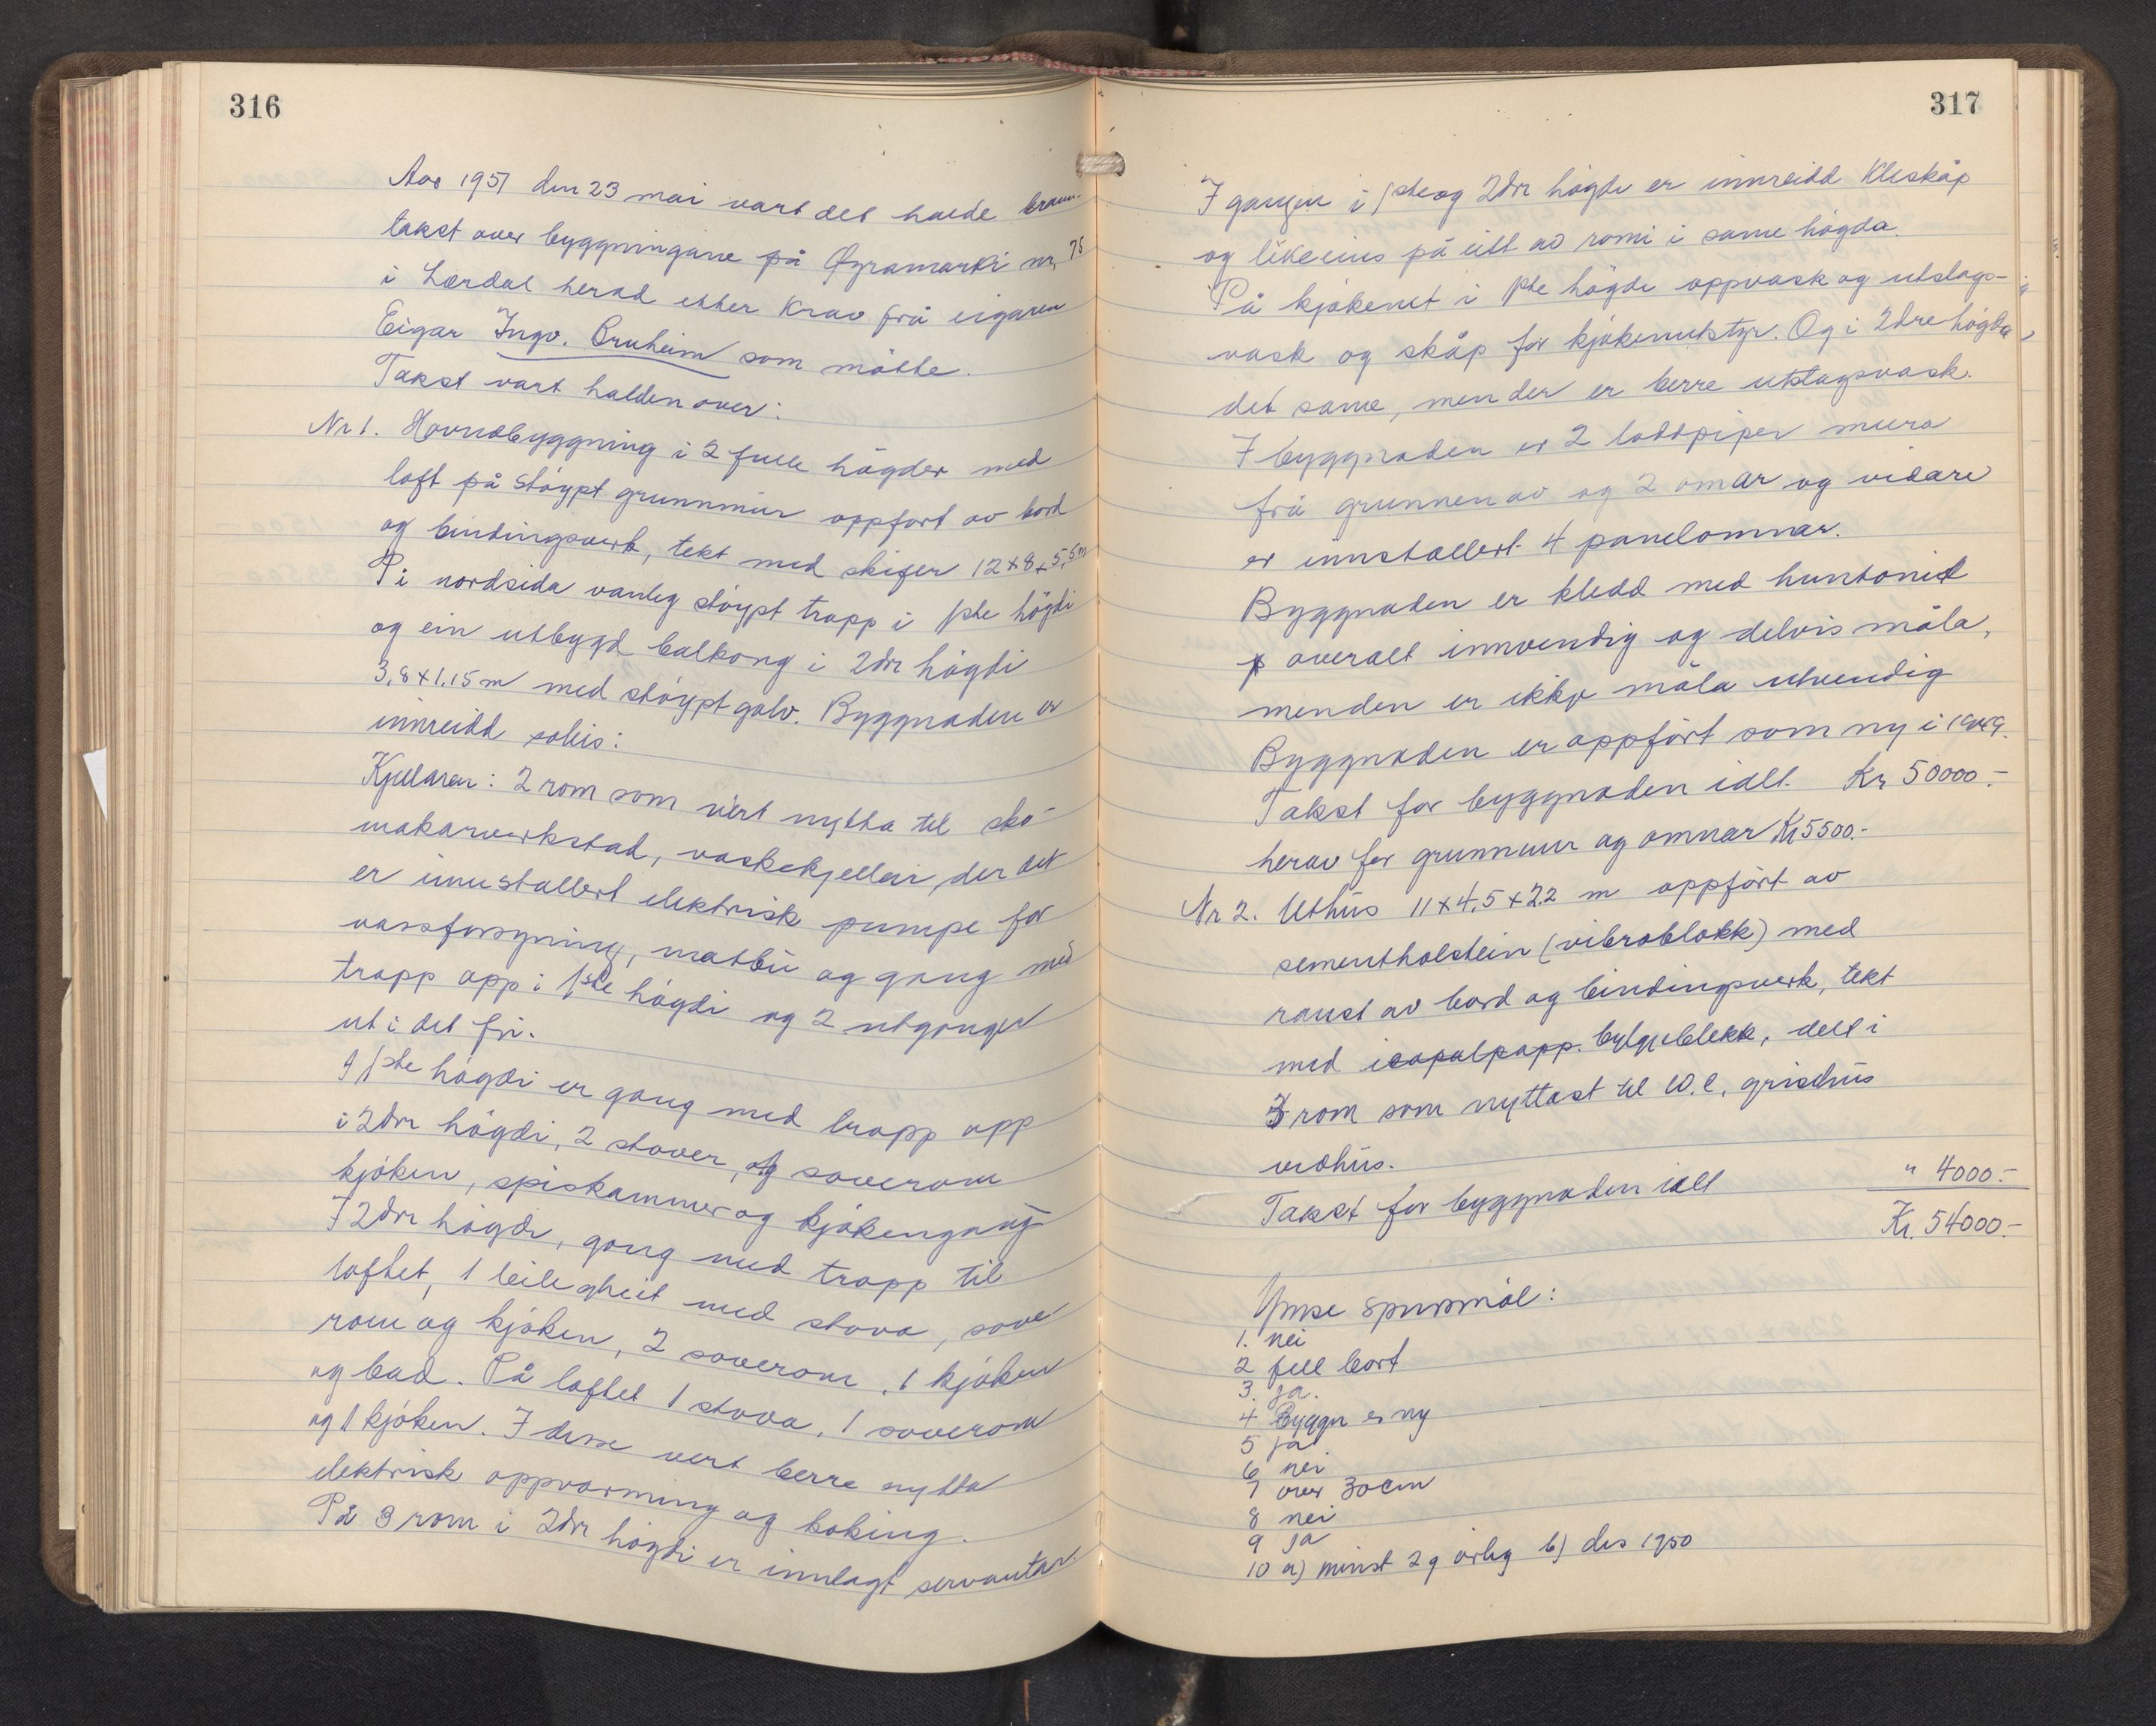 316
Aar 1951 den 23 mai vart det halde brann-
takst over byggningane på Øyramarki nr, 75
i Lærdal herad etter krav frå eigaren
Eigar Ingv. Bruheim som møtte.
Takst vart halden over:
Nr 1. Hovudbyggning i 2 fulle högder med
loft på stöypt grunnmur oppfört av bord
og bindingsverk, tekt med skifer 12x8x5,5m
På nordsida vanleg stöypt trapp i 1ste högdi
og ein utbygd balkong i 2dre högdi
3,8x1,15m med stöypt golv. Byggnaden er
innreidd soleis:
Kjellaren: 2 rom som vert nytta til sko-
makarverkstad, vaskekjellar, der det
er innstallert elektrisk pumpe for
vassforsyning, matbu og gang med
trapp opp i 1ste högdi og 2 utganger
ut i det fri.
I 1ste högdi er gang med trapp opp
i 2dre högdi, 2 stover, og soverom
kjöken, spiskammer og kjökengang
I 2dre högdi, gang med trapp til
loftet, 1 leilegheit med stova, sove
rom og kjöken, 2 soverom, 1 kjöken
og bad. På loftet 1 stova, 1 soverom
og 1 kjöken. I desse vert berre nytta
elektrisk oppvarming og koking.
På 3 rom i 2dre högdi er innlagt servantar.
317
I gangen i 1ste og 2dre högdi er innreidd kleskåp
og likeeins på eitt av romi i same högda.
På kjökenet i 1ste högdi oppvask og utslags-
vask og skåp for kjökenutstyr. Og i 2dre högda
det same, men der er berre utslagsvask.
I byggnaden er 2 loddpiper mura
frå grunnen av og 2 omnar og vidare
er innstallert 4 panelomnar.
Byggnaden er kledd med huntonit
overalt innvendig og delvis måla,
men den er ikkje måla utvendig
Byggnaden er oppfört som ny i 1949.
Takst for byggnaden ialt. Kr 50000.-
herav for grunnmur og omnar Kr 5500.-
Nr 2. Uthus 11x4,5x2,2 m oppfört av
sementholstein (vibroblokk) med
raust av bord og bindingsverk, tekt
med icopalpapp. bylgjeblekk, delt i
3 rom som nyttast til W.C, grisehus
vedhus.
Takst for byggnaden ialt " 4000.-
Kr. 54000.-
Ymse spursmål:
1. nei
2 fell bort
3. ja.
4 Byggn er ny
5 ja
6 nei
7 over 30 cm
8 nei
9 ja
10 a) minst 2 g årleg b) des 1950